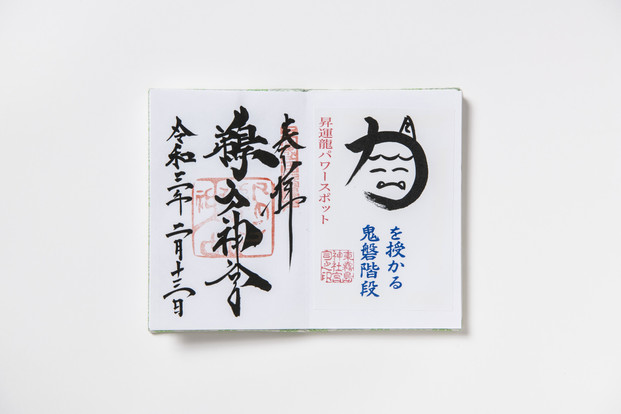 力
を授かる
鬼磐階段
昇運龍パワースポット
奉拝
鵜戸神宮
令和三年二月十三日